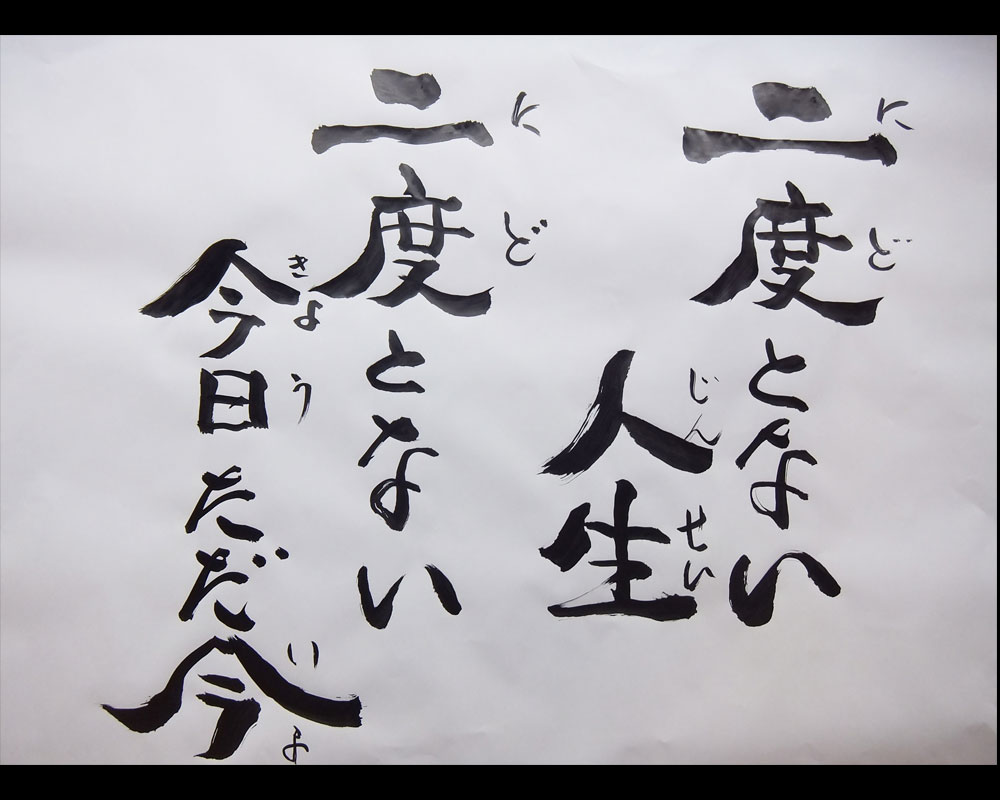 二度とない
にど
人生
じんせい
二度とない
にど
今日ただ今
きょういま